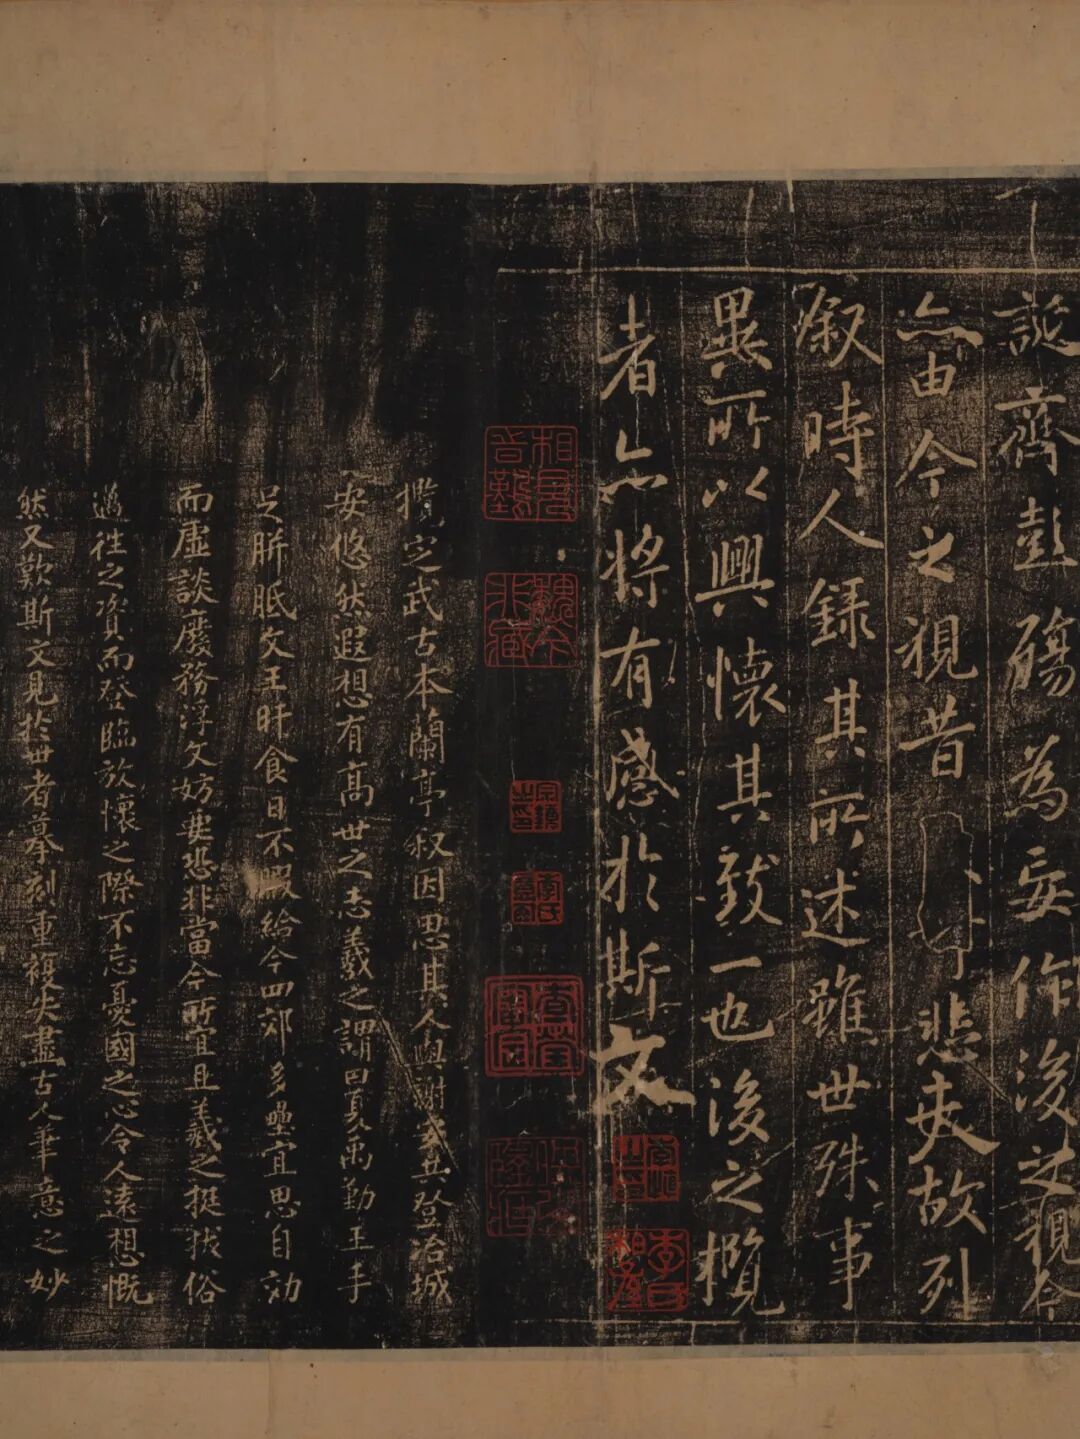 誕齊彭殤為妄作後之視今
亦由今之視昔悲夫故列
叙時人錄其所述雖世殊事
異所以興懷其致一也後之攬
者亦將有感於斯文
攬定武古本蘭亭叙因思其人與謝安共登冶城
安悠然遐想有高世之志羲之謂曰夏禹勤王手
足胼胝文王旰食日不暇給今四郊多壘宜思自効
而虛談廢務浮文妨要恐非當今所宜且羲之挺拔俗
邁往之資而登臨放懷之際不忘憂國之心令人遠想慨
然又歎斯文見於世者摹刻重複失盡古人筆意之妙